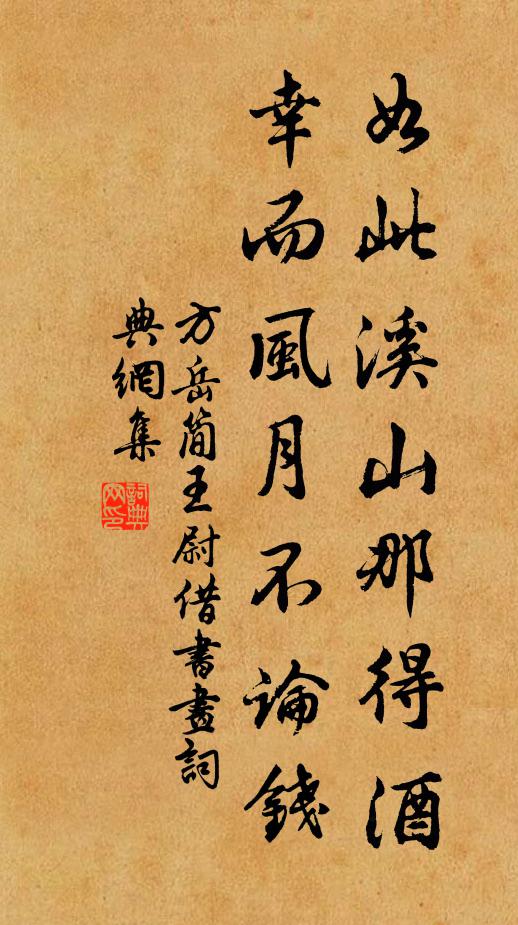 如此溪山那得酒
幸而風月不論錢
方岳簡王尉借書畫詞
典網集
詞典網印